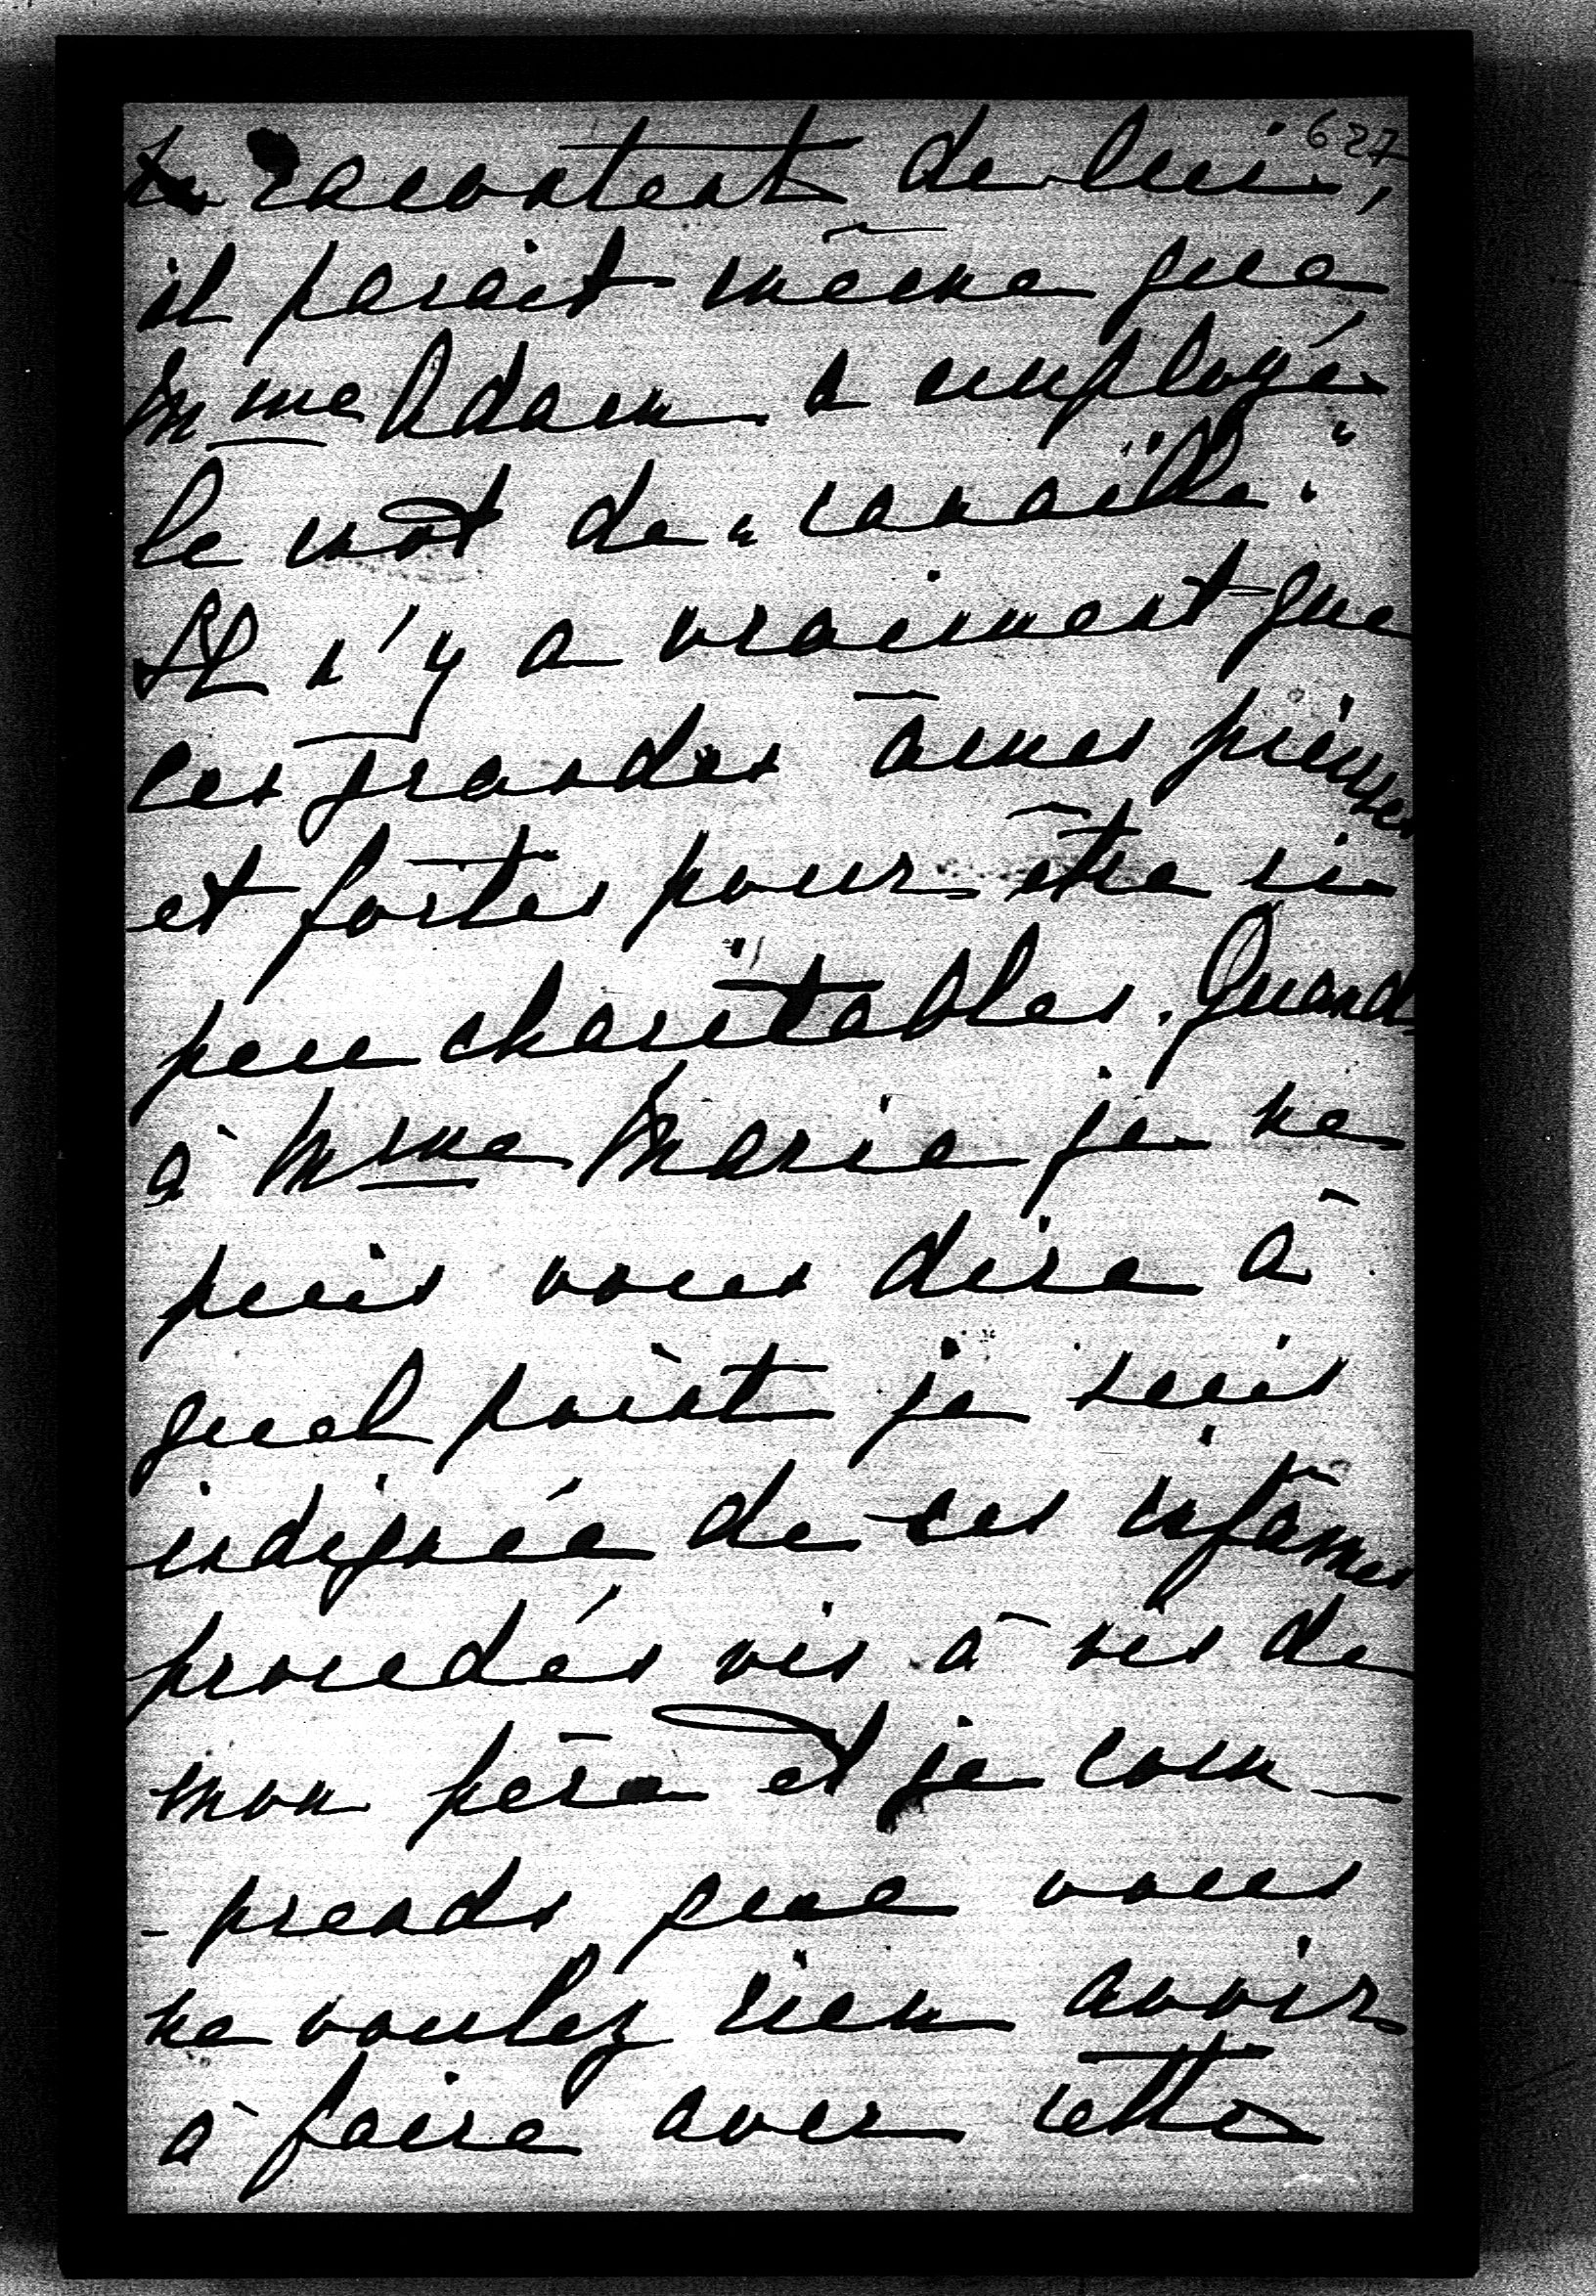 627
se racontent de lui,
il parait même que
Mme Adam a employé
le mot de "canaille."
Il n'y a vraiment que
les grandes âmes pieuses
et fortes pour être si
peu charitables. Quand
à Mme Marie je ne
puis vous dire à
quel point je suis
indignée de ces infâmes
procédés vis à vis de
mon père et je com-
-prends que vous
ne voulez rien avoir
à faire avec cette